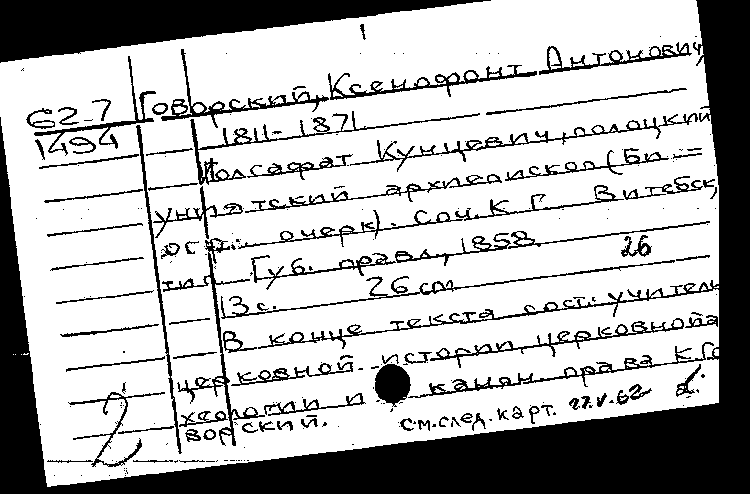 1
Говорский, Ксенофонт Антонович,
62-7
1494
1811-1871
Иосафат Кунцевич, полоцкий
униятский архиепископ (Би=
огр. очерк). Соч. К. Г. Витебск,
тип. Губ. правл., 1858.
26
13 с. 26 см
В конце текста сост.: учитель
церковной истории, церковной а
хеологии и канон. права К. Го
ворский.
см. след. карт. 27.V.62
2